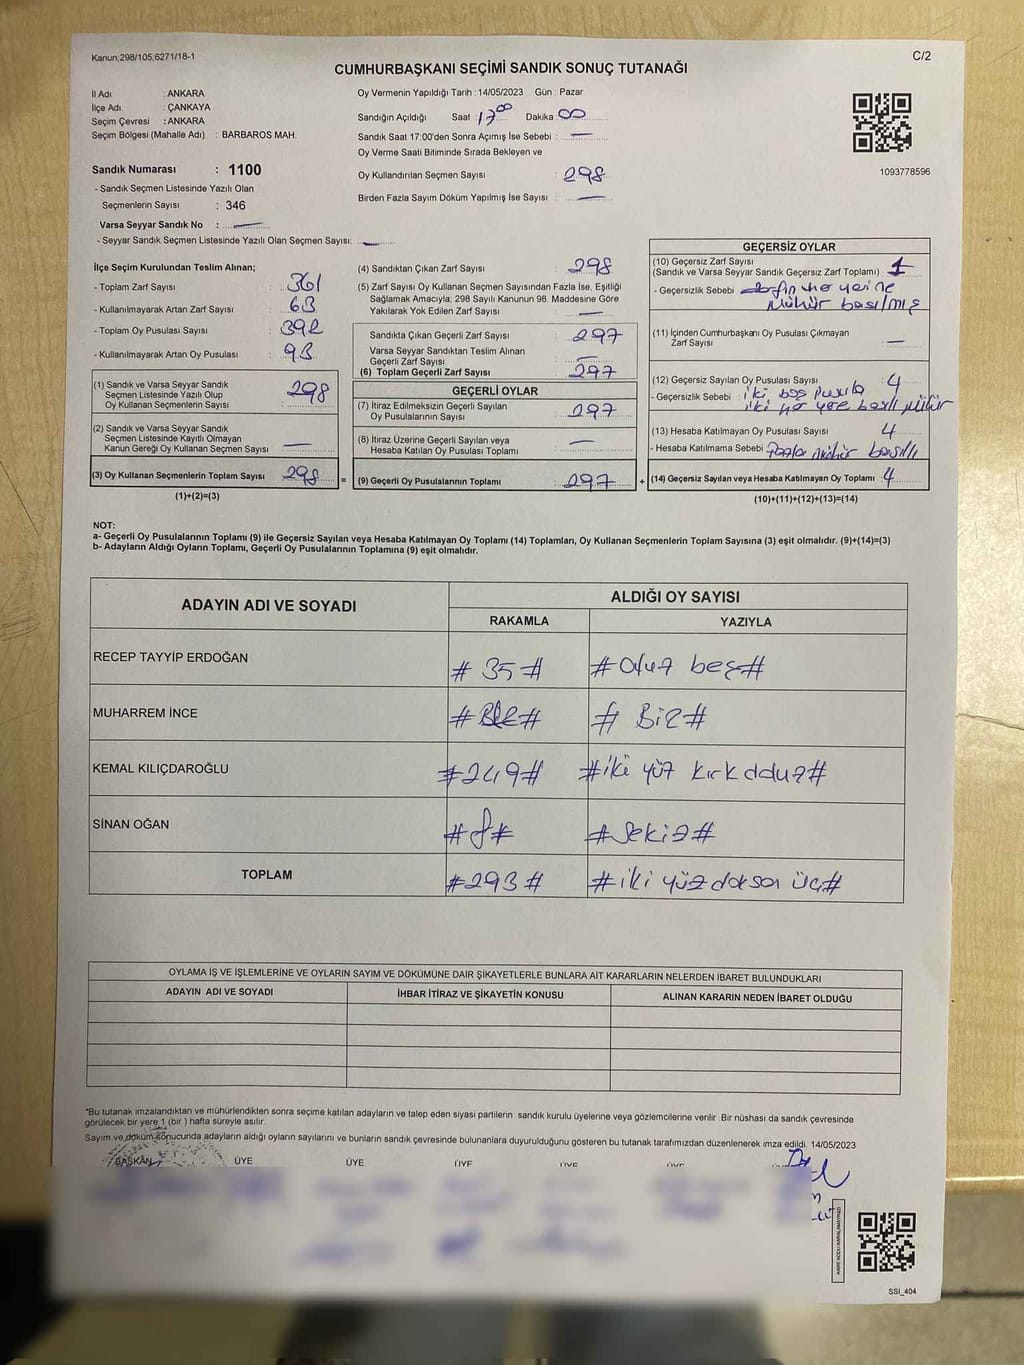 Kanun;298/105,6271/18-1
C/2
CUMHURBAŞKANI SEÇİMİ SANDIK SONUÇ TUTANAĞI
İl Adı : ANKARA
İlçe Adı : ÇANKAYA
Seçim Çevresi : ANKARA
Seçim Bölgesi (Mahalle Adı) : BARBAROS MAH.
Oy Vermenin Yapıldığı Tarih : 14/05/2023 Gün : Pazar
Sandığın Açıldığı Saat : 17 00 Dakika : 00
Sandık Saat 17:00'den Sonra Açımış İse Sebebi : —
Oy Verme Saati Bitiminde Sırada Bekleyen ve
Oy Kullandırılan Seçmen Sayısı : 298
Birden Fazla Sayım Döküm Yapılmış İse Sayısı : —
1093778596
Sandık Numarası : 1100
- Sandık Seçmen Listesinde Yazılı Olan
Seçmenlerin Sayısı : 346
Varsa Seyyar Sandık No : —
- Seyyar Sandık Seçmen Listesinde Yazılı Olan Seçmen Sayısı: —
İlçe Seçim Kurulundan Teslim Alınan;
- Toplam Zarf Sayısı : 361
- Kullanılmayarak Artan Zarf Sayısı : 63
- Toplam Oy Pusulası Sayısı : 392
- Kullanılmayarak Artan Oy Pusulası : 93
(1) Sandık ve Varsa Seyyar Sandık
Seçmen Listesinde Yazılı Olup
Oy Kullanan Seçmenlerin Sayısı : 298
(2) Sandık ve Varsa Seyyar Sandık
Seçmen Listesinde Kayıtlı Olmayan
Kanun Gereği Oy Kullanan Seçmen Sayısı : —
(3) Oy Kullanan Seçmenlerin Toplam Sayısı : 298 =
(1)+(2)=(3)
(4) Sandıktan Çıkan Zarf Sayısı : 298
(5) Zarf Sayısı Oy Kullanan Seçmen Sayısından Fazla İse, Eşitliği
Sağlamak Amacıyla; 298 Sayılı Kanunun 98. Maddesine Göre
Yakılarak Yok Edilen Zarf Sayısı : —
Sandıkta Çıkan Geçerli Zarf Sayısı : 297
Varsa Seyyar Sandıktan Teslim Alınan
Geçerli Zarf Sayısı : —
(6) Toplam Geçerli Zarf Sayısı : 297
GEÇERLİ OYLAR
(7) İtiraz Edilmeksizin Geçerli Sayılan
Oy Pusulalarının Sayısı : 297
(8) İtiraz Üzerine Geçerli Sayılan veya
Hesaba Katılan Oy Pusulası Toplamı : —
(9) Geçerli Oy Pusulalarının Toplamı : 297 +
GEÇERSİZ OYLAR
(10) Geçersiz Zarf Sayısı
(Sandık ve Varsa Seyyar Sandık Geçersiz Zarf Toplamı) : 1
- Geçersizlik Sebebi : her yerine
mühür basılmış
(11) İçinden Cumhurbaşkanı Oy Pusulası Çıkmayan
Zarf Sayısı : —
(12) Geçersiz Sayılan Oy Pusulası Sayısı : 4
- Geçersizlik Sebebi : iki boş pusula
iki her yere basılı mühür
(13) Hesaba Katılmayan Oy Pusulası Sayısı : 4
- Hesaba Katılmama Sebebi : Fazla mühür basıllı
(14) Geçersiz Sayılan veya Hesaba Katılmayan Oy Toplamı : 4
(10)+(11)+(12)+(13)=(14)
NOT:
a- Geçerli Oy Pusulalarının Toplamı (9) ile Geçersiz Sayılan veya Hesaba Katılmayan Oy Toplamı (14) Toplamları, Oy Kullanan Seçmenlerin Toplam Sayısına (3) eşit olmalıdır. (9)+(14)=(3)
b- Adayların Aldığı Oyların Toplamı, Geçerli Oy Pusulalarının Toplamına (9) eşit olmalıdır.
ADAYIN ADI VE SOYADI
ALDIĞI OY SAYISI
RAKAMLA YAZIYLA
RECEP TAYYİP ERDOĞAN # 35 # # Otuz beş #
MUHARREM İNCE # Bir #
KEMAL KILIÇDAROĞLU # 249 # # iki yüz kırk dokuz #
SİNAN OĞAN # 8 # # Sekiz #
TOPLAM # 293 # # iki yüz doksan üç #
OYLAMA İŞ VE İŞLEMLERİNE VE OYLARIN SAYIM VE DÖKÜMÜNE DAİR ŞİKAYETLERLE BUNLARA AİT KARARLARIN NELERDEN İBARET BULUNDUKLARI
ADAYIN ADI VE SOYADI İHBAR İTİRAZ VE ŞİKAYETİN KONUSU ALINAN KARARIN NEDEN İBARET OLDUĞU
*Bu tutanak imzalandıktan ve mühürlendikten sonra seçime katılan adayların ve talep eden siyasi partilerin sandık kurulu üyelerine veya gözlemcilerine verilir .Bir nüshası da sandık çevresinde
görülecek bir yere 1 (bir ) hafta süreyle asılır.
Sayım ve döküm sonucunda adayların aldığı oyların sayılarını ve bunların sandık çevresinde bulunanlara duyurulduğunu gösteren bu tutanak tarafımızdan düzenlenerek imza edildi. 14/05/2023
BAŞKAN ÜYE ÜYE ÜYE ÜYE ÜYE
SSI_404